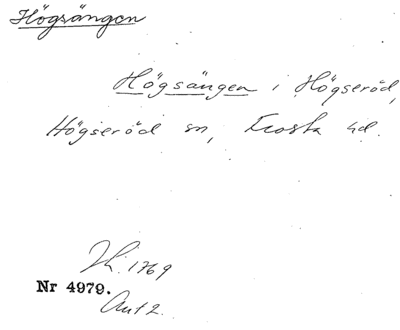 Högsängen
Högsängen i Högseröd,
Högseröd sn, Frosta hd.
Jh. 1769
Nr 4979.
Ant 2.